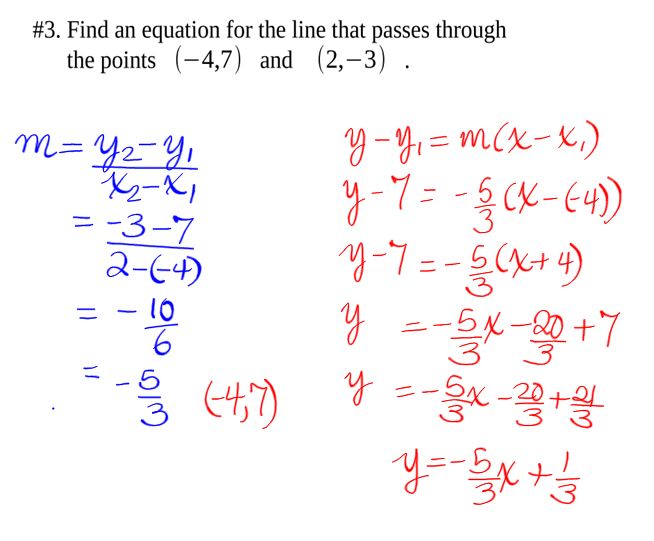 #3. Find an equation for the line that passes through
the points (−4,7) and (2,−3) .
m = y₂−y₁ / x₂−x₁
= −3−7 / 2−(−4)
= −10/6
= −5/3
(−4,7)
y−y₁ = m(x−x₁)
y−7 = −5/3(x−(−4))
y−7 = −5/3(x+4)
y = −5/3x −20/3 +7
y = −5/3x −20/3 +21/3
y = −5/3x + 1/3